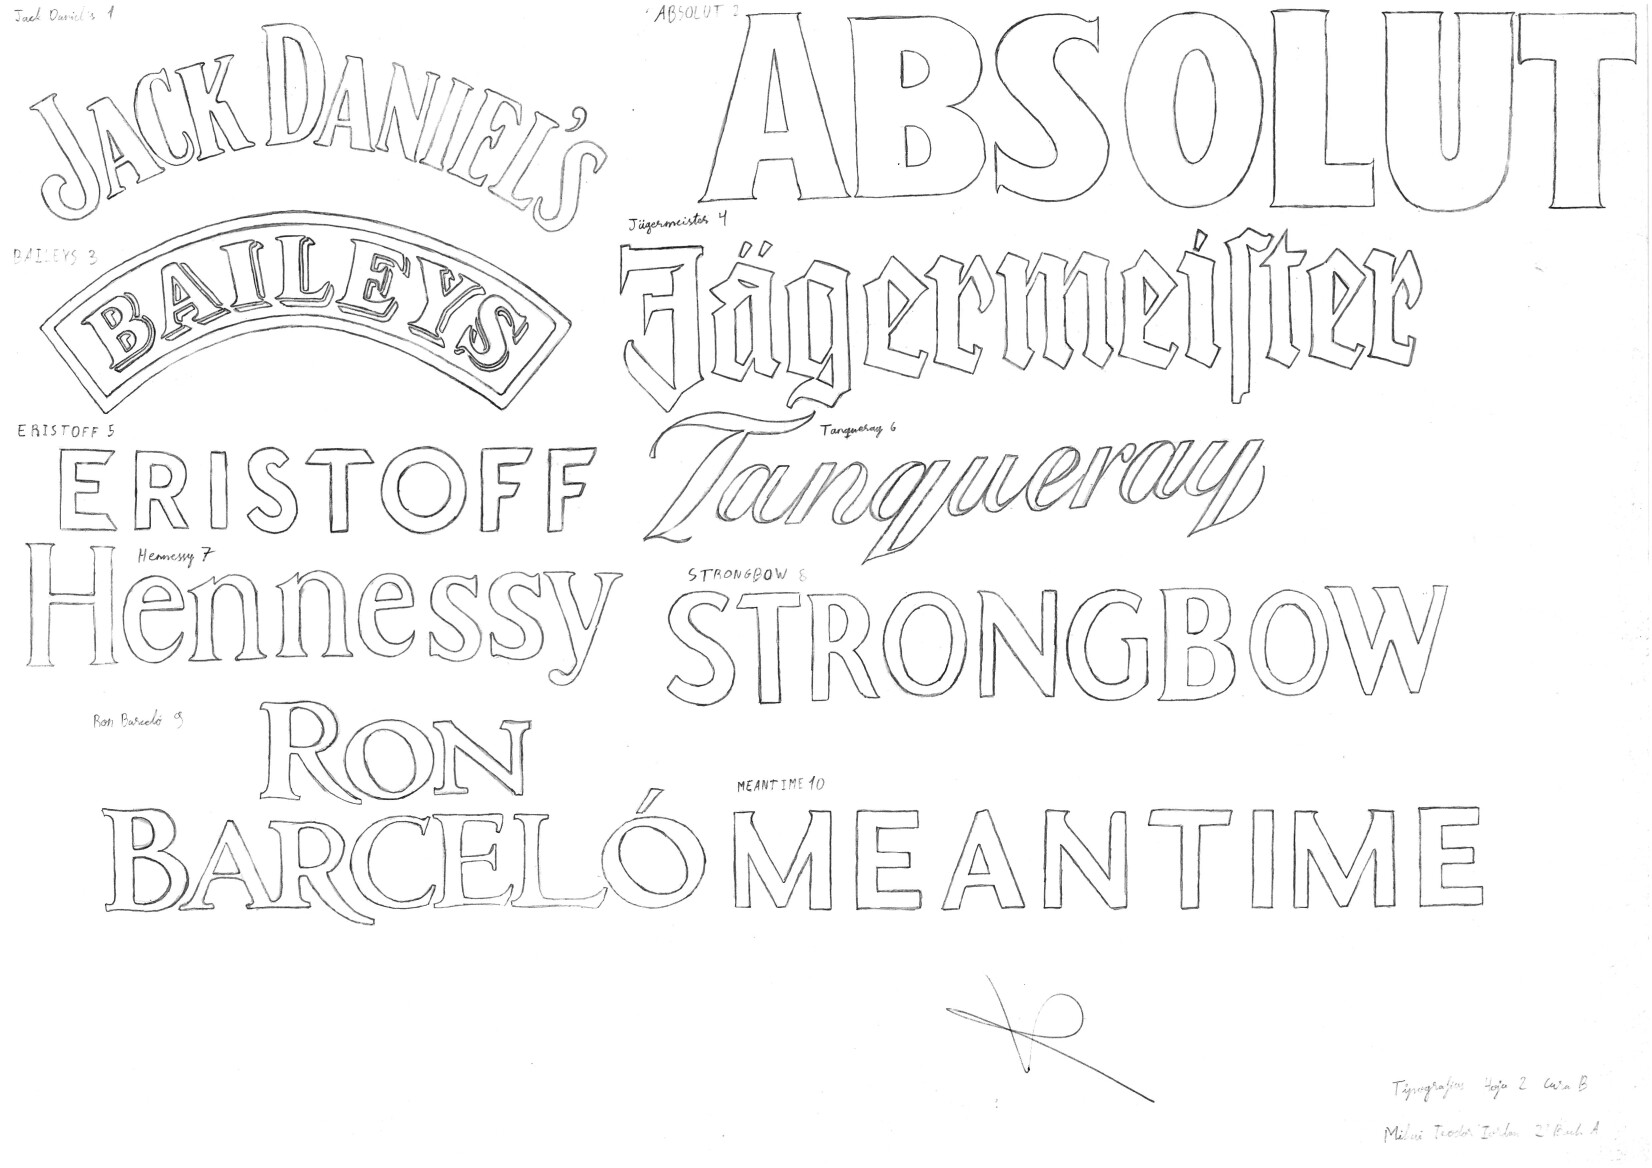 Jack Daniel's 1
JACK DANIEL'S
ABSOLUT 2
ABSOLUT
BAILEYS 3
BAILEYS
Jägermeister 4
Jägermeiſter
ERISTOFF 5
ERISTOFF
Tanqueray 6
Tanqueray
Hennessy 7
Hennessy
STRONGBOW 8
STRONGBOW
Ron Barceló 9
RON
BARCELÓ
MEANTIME 10
MEANTIME
Tipografías Hoja 2 Cara B
Mihai 2º Bach A